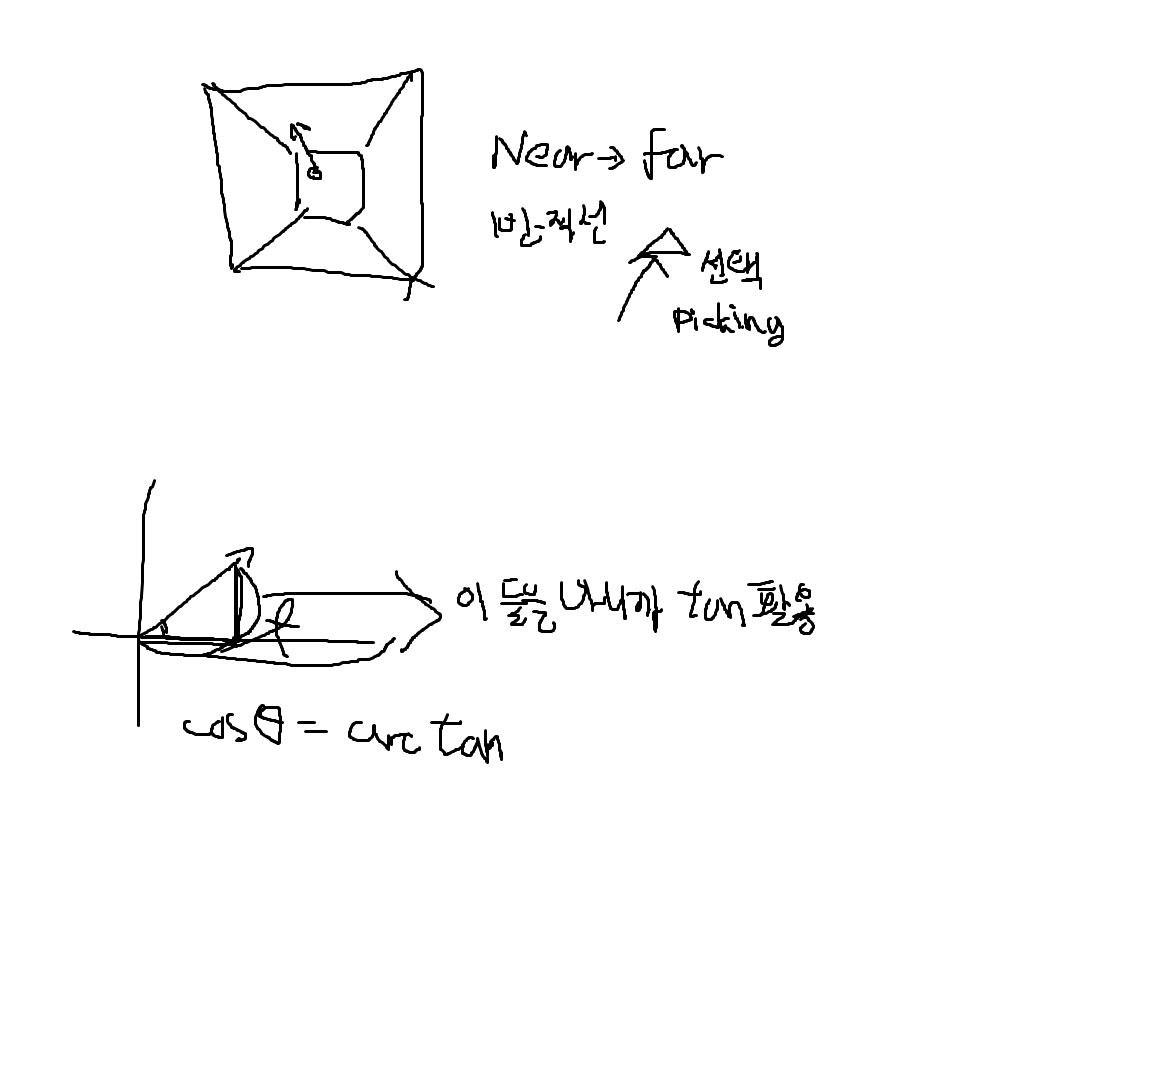 Near → far
반직선
선택
Picking
이 둘을 나누까 tan 활용
cosθ = arc tan